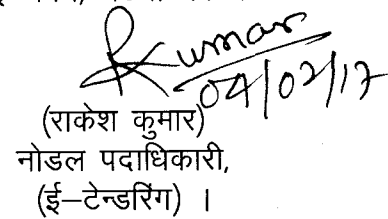 RKumar
04/02/17
(राकेश कुमार)
नोडल पदाधिकारी,
(ई–टेन्डरिंग) ।